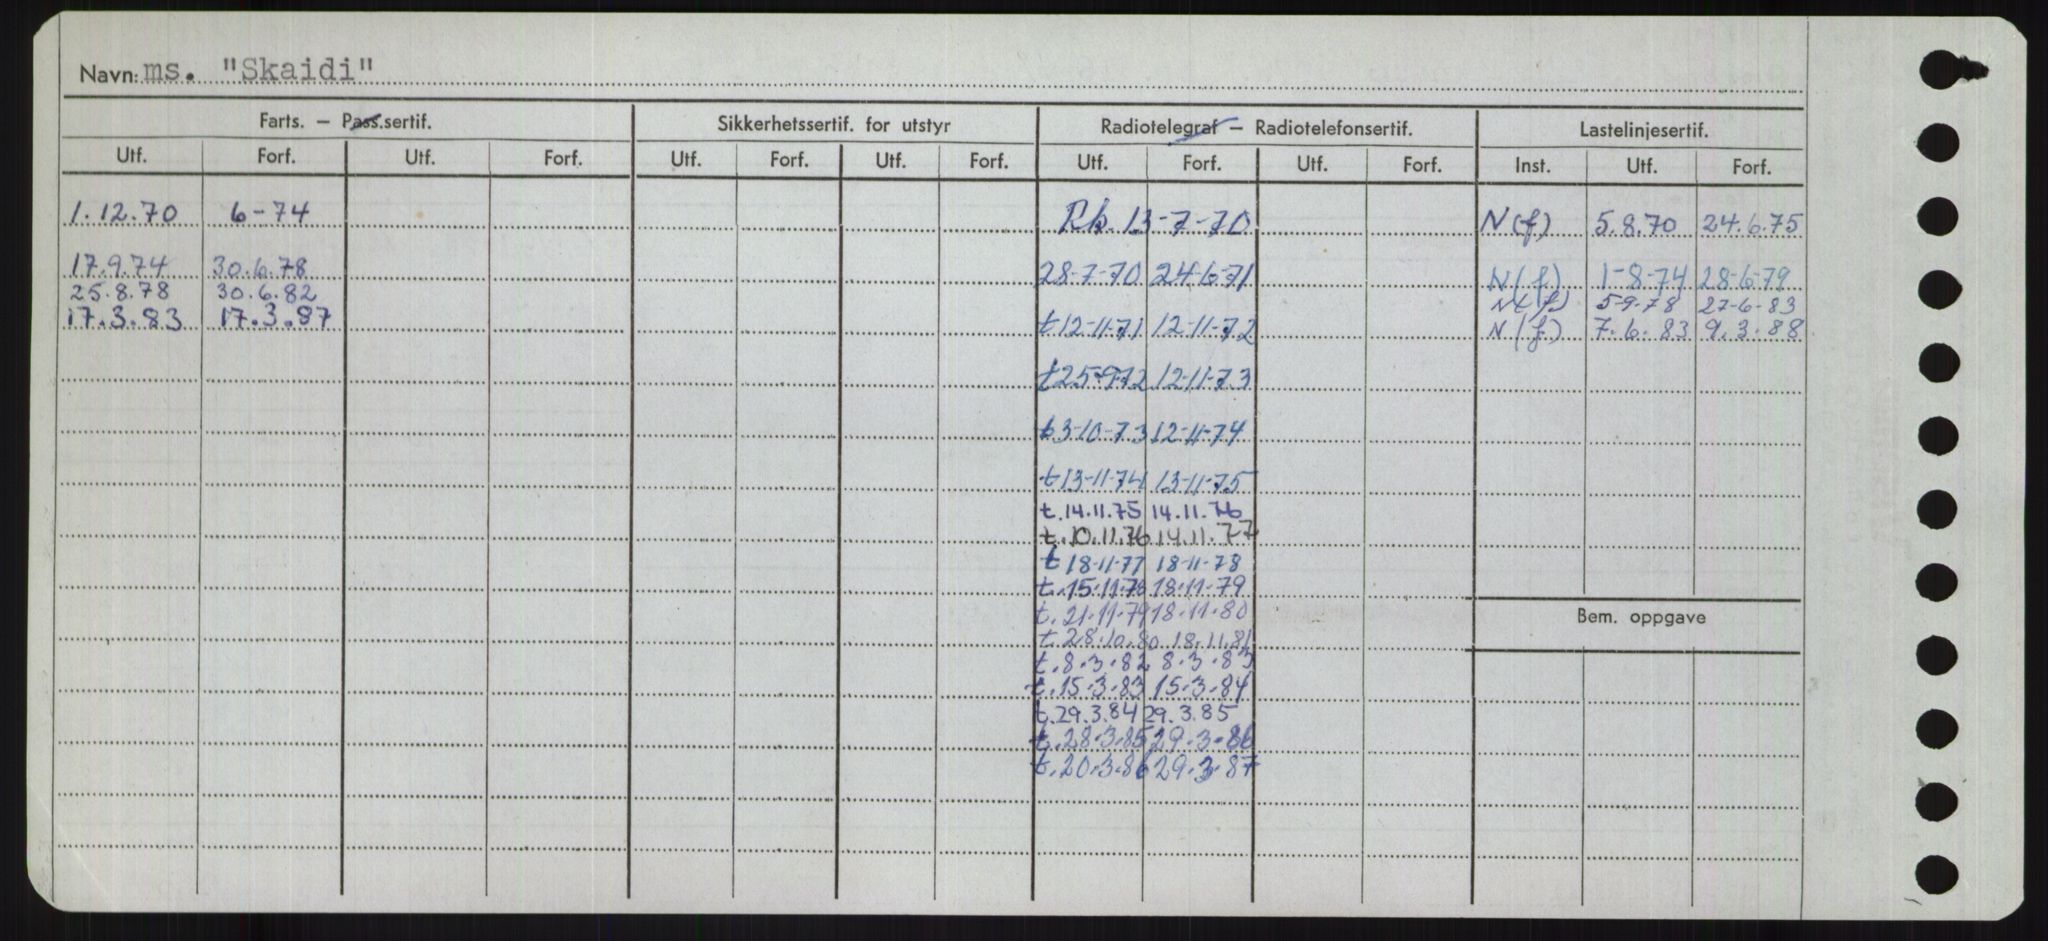 Navn: ms. "Skaidi"
Farts. – Pass.sertif. Sikkerhetssertif. for utstyr Radiotelegraf – Radiotelefonsertif. Lastelinjesertif.
Utf. Forf. Utf. Forf. Utf. Forf. Utf. Forf. Utf. Forf. Utf. Forf. Inst. Utf. Forf.
1.12.70 6-74 Rk. 13-7-70 N(f) 5.8.70 24.6.75
17.9.74 30.6.78 28-7-70 24-6-71 N(f) 1-8-74 28-6-79
25.8.78 30.6.82 N(f) 5-9-78 27-6-83
17.3.83 17.3.87 t12-11-71 12-11-72 N(f) 7.6.83 9.3.88
t25-9-72 12-11-73
t3-10-73 12-11-74
t13-11-74 13-11-75
t.14.11.75 14.11.76
t.10.11.76 14.11.77
t 18-11-77 18-11-78
t.15.11.78 18.11.79
t.21.11.79 18.11.80
Bem. oppgave
t.28.10.80 18.11.81
t.8.3.82 8.3.83
t.15.3.83 15.3.84
t.29.3.84 29.3.85
t.28.3.85 29.3.86
t.20.3.86 29.3.87